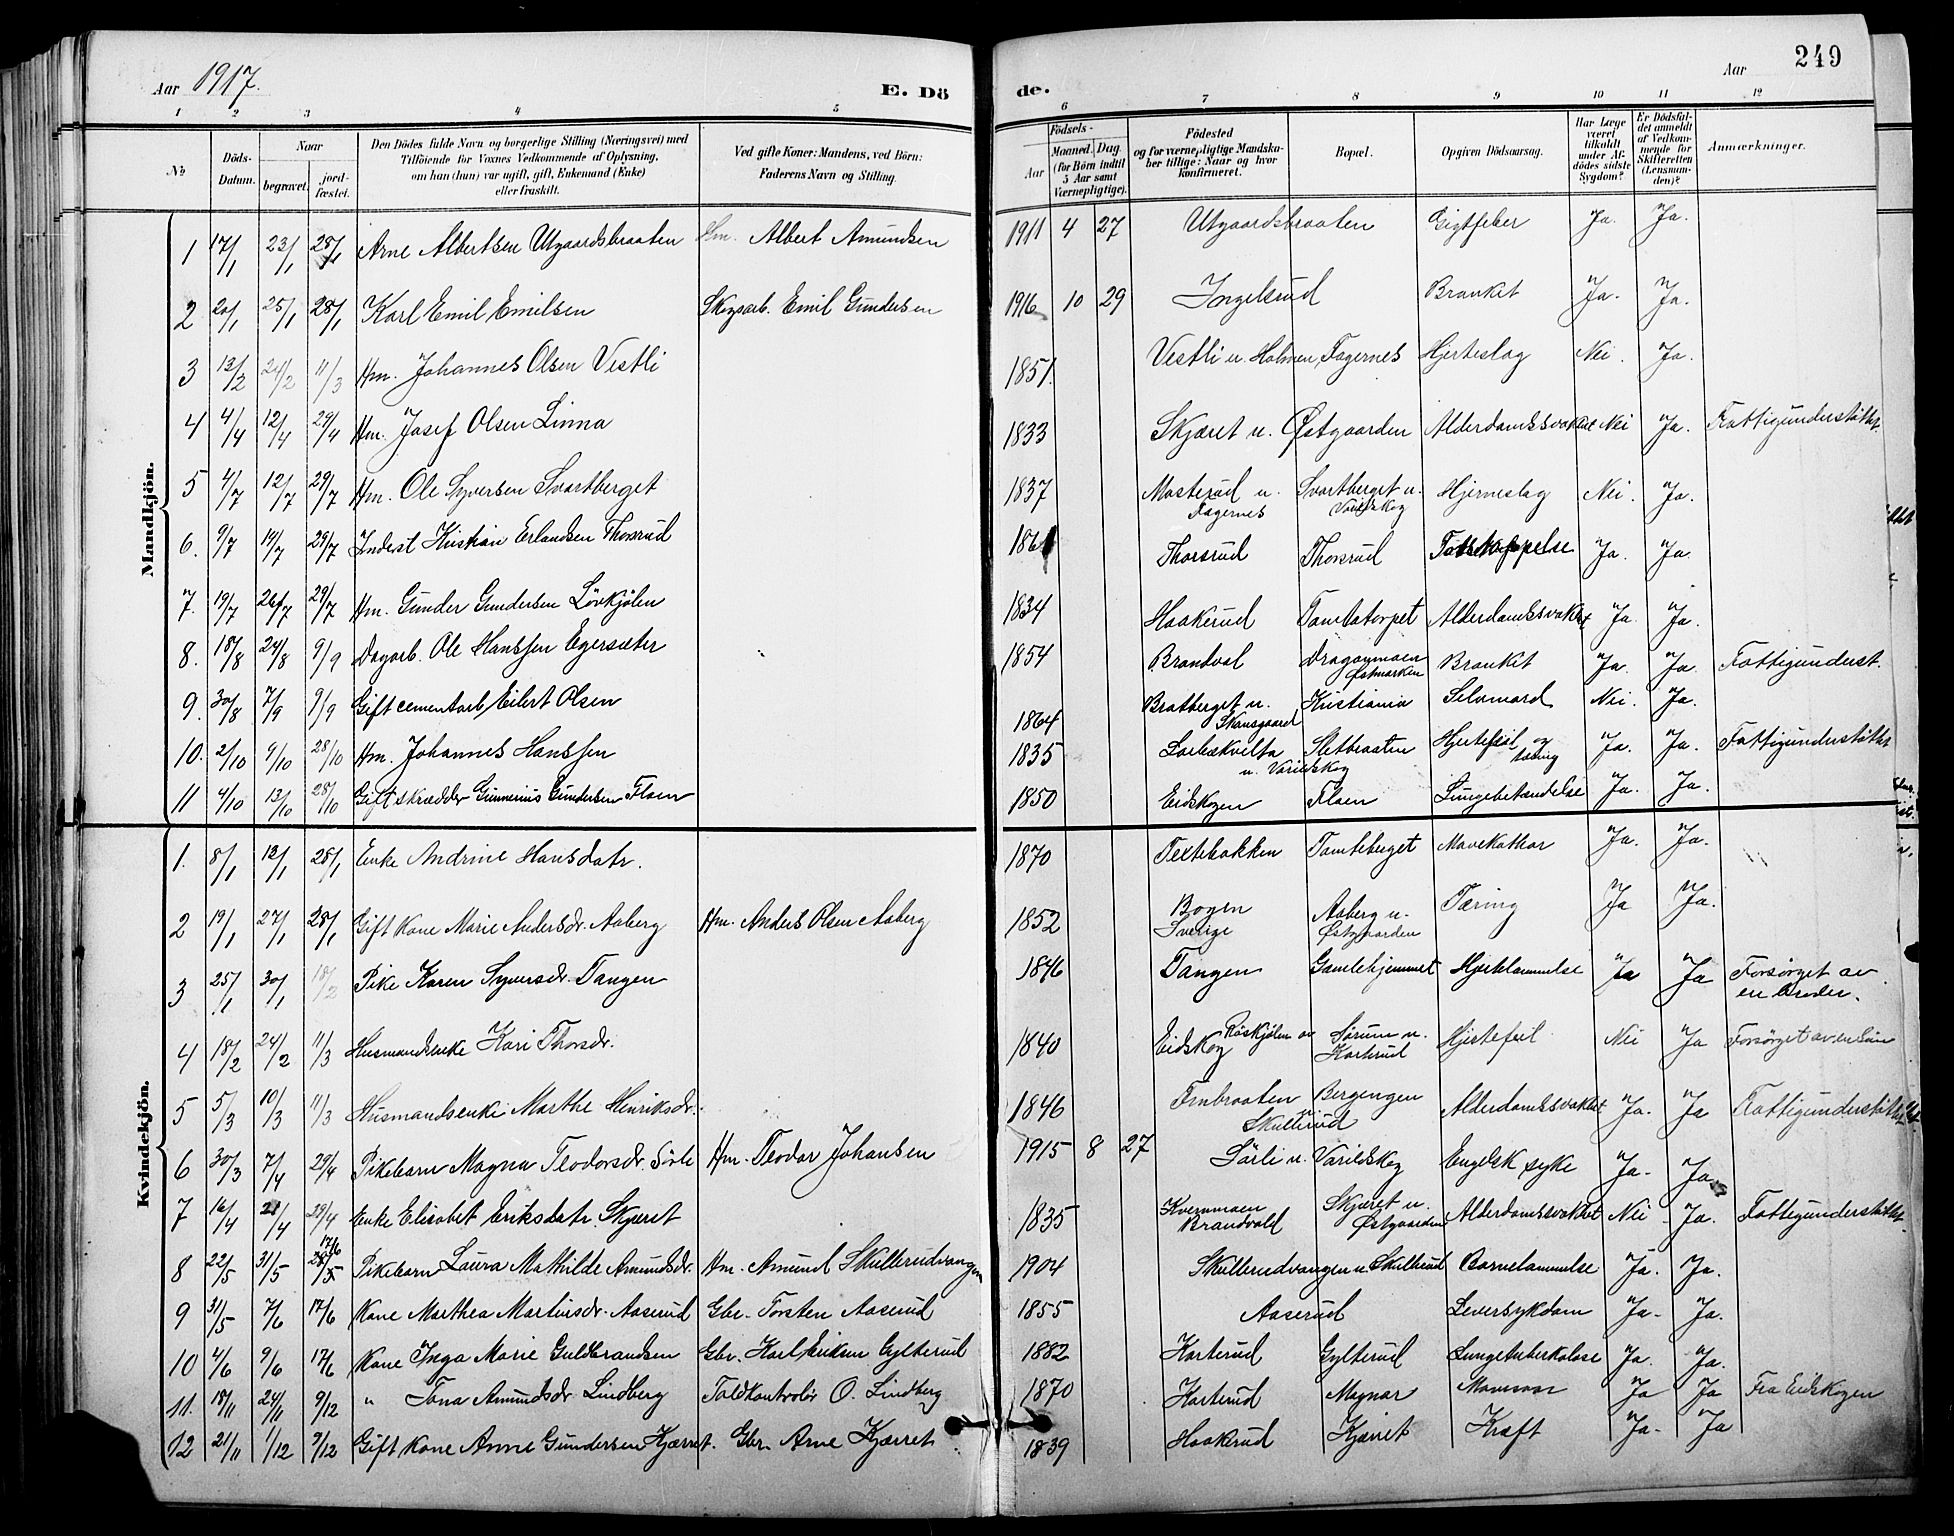 Aar 1917. E. Dö
de. Aar 249
1 2 3 4 5 6 7 8 9 10 11 12
№ Döds-Datum. Naar begravet. jord-fæstet. Den Dödes fulde Navn og borgerlige Stilling (Næringsvei) med Tilföiende for Voxnes Vedkommende af Oplysning, om han (hun) var ugift, gift, Enkemand (Enke) eller fraskilt. Ved gifte Koner: Mandens, ved Börn: Faderens Navn og Stilling.
Födsels- Aar Maaned. Dag. (for Börn indtil 5 Aar samt Værnepligtige). Födested og for værnepligtige Mandska-ber tillige: Naar og hvor konfirmeret. Bopæl. Opgiven Dödsaarsag. Har Læge været tilkaldt under Af-dödes sidste Sygdom? Er Dödsfal-det anmeldt af Vedkom-mende for Skifteretten (Lensman-den)? Anmærkninger.
Mandkjön.
1 17/1 23/1 28/1 Arne Albertsen Utgaardsbraaten Hm. Albert Amundsen 1911 4 27 Utgaardsbraaten Gigtfeber Ja. Ja.
2 20/1 25/1 28/1 Karl Emil Emilsen Skogsarb. Emil Gundersen 1916 10 29 Ingelsrud Bronkit Ja. Ja.
3 13/2 24/2 11/3 Hm. Johannes Olsen Vestli 1851. Vestli u. Holmen, Fagernes Hjerteslag Nei. Ja.
4 4/4 12/4 29/4 Hm. Josef Olsen Linna 1833 Skjæret u. Østgaarden Alderdomssvakhet Nei Ja. Fattigunderstöttet.
5 4/7 12/7 29/7 Hm. Ole Syversen Svartberget 1837 Masterud u. Fagernes Svartberget u. Varildskog Hjerneslag Nei. Ja.
6. 9/7 19/7 29/7 Inderst Kristian Erlandsen Thorsrud Thorsrud Thorsrud Ja. Ja.
7. 19/7 26/7 29/7 Hm. Gunder Gundersen Lövkjölen 1834 Haakerud Tomtatorpet Alderdomssvakhet Ja. Ja.
8. 18/8 24/8 9/9 Dagarb. Ole Hanssen Egersæter 1854 Brandval Dragonmoen Østmarken Bronkit Ja. Ja. Fattigunderst.
9. 30/8 7/9 9/9 Gift cementarb. Eilert Olsen 1864 Bratberget u. Skansgaard Kristiania Selvmord Nei. Ja.
10. 2/10 9/10 28/10 Hm. Johannes Hanssen 1835 u. Varildskog Sletbraaten Hjertefeil og tæring Ja. Ja. Fattigunderstöttet
11 4/10 13/10 28/10 Gift skrædder Gunnerius Gundersen Floen 1850 Eidskogen Floen Lungebetændelse Ja. Ja.
Kvindekjön.
1. 8/1 12/1 28/1 Enke Andrine Hansdatr. 1870 Teltebakken Tomteberget Mavekathar Ja. Ja.
2 19/1 27/1 28/1 Gift kone Marie Andersdr. Aaberg Hm. Anders Olsen Aaberg 1852 Bogen Sverige Aaberg u. Østgaarden Tæring Ja Ja.
3 25/1 30/1 18/2 Pike Karen Syversdr. Tangen 1846 Tangen Gamlehjemmet Hjertelammelse Ja Ja Forsörget av en broder.
4 18/2 24/2 11/3 Husmandsenke Kari Thorsdr. 1840 Eidskog Röskjölen av Sørum u. Korterud Hjertefeil Nei Ja Forsörget av en Sön
5 5/3 10/3 11/3 Husmandsenke Marthe Henriksdr. 1846 Bergengen u. Skullerud Alderdomssvakhet Ja. Ja Fattigunderstöttet
6 30/3 7/4 29/4 Pikebarn Magna Teodorsdr. Sörli Hm. Teodor Johansen 1915 8 27 Sörli u. Varildskog Engelsk syke Ja. Ja
7 16/4 21/4 29/4 Enke Elisabet Eriksdatr. Skjæret 1835 Kvernmoen Brandvold Skjæret u. Østgaarden Alderdomssvakhet Nei Ja. Fattigunderstöttet.
8 22/5 31/5 28/5 17/6 Pikebarn Laura Mathilde Amundsdr. Hm. Amund Skullerudvangen 1904 Skullerudvangen u. Skullerud Barnelammelse Ja. Ja.
9 31/5 7/6 17/6 Kone Marthea Martinsdr. Aaserud Gbr. Torsten Aaserud 1855 Aaserud Leversykdom Ja. Ja.
10 4/6 9/6 17/6 Kone Inga Marie Guldbrandsen Gbr. Karl Eriksen Gylterud 1882 Korterud Gylterud Lungetuberkolose Ja. Ja.
11. 18/11 24/11 9/12 " Tona Amundsdr. Lindberg Toldkontrolör O. Lindberg 1870 Korterud Magnor Mavesaar Ja Ja Fra Eidskogen
12 21/11 1/12 9/12 Gift kone Anne Gundersen Kjærret. Gbr. Arne Kjærret 1839 Haakerud Kjærret Kræft Ja. Ja